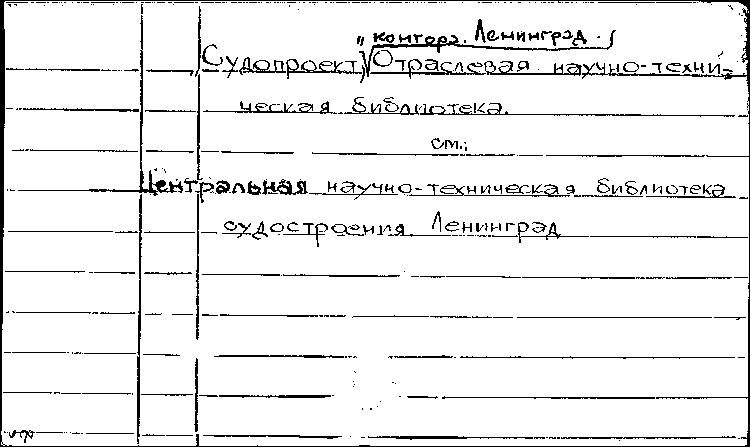 " контора. Ленинград.
„Судопроект" Отраслевая научно-техни-
ческая библиотека.
см.:
Центральная научно-техническая библиотека
судостроения. Ленинград